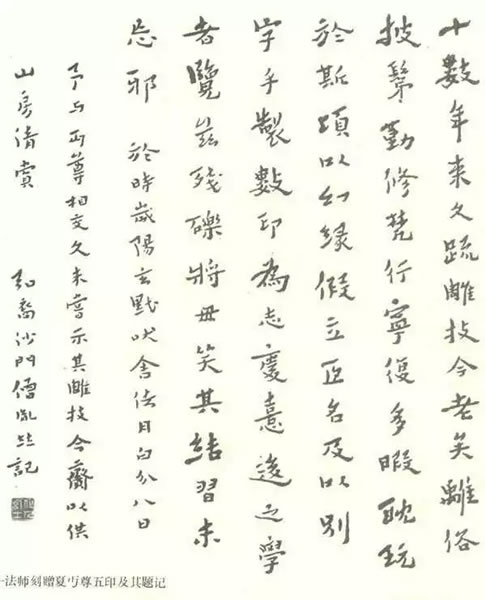 十數年來久疏雕技今老矣離俗
披鬀勤修梵行寧復多暇耽玩
於斯頃以幻緣假立臣名及以別
字手製數印為志慶憙後之學
者覽茲殘礫將毋笑其結習未
忘邪 於時歲陽玄黓吠舍佉月白分八日
予与丏尊相交久未嘗示其雕技今齎以供
山房清賞 弘裔沙門僧胤並記
一法师刻赠夏丏尊五印及其题记